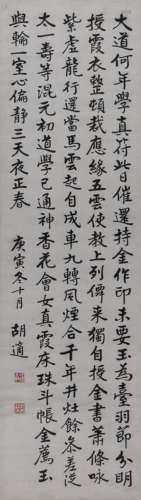 大道何年學真符此日催還持金作印未要玉為臺羽節分明
授霞衣整頓裁應緣五雲使教上列僊來獨授金書蕭條詠
紫虛龍行還當馬雲起自成車九轉風煙合千年井灶餘參差從
太一壽等混元初道學已通神香花會女真霞床珠斗帳金薦玉
輿輪一室心偏靜三天夜正春
庚寅冬十月
胡適